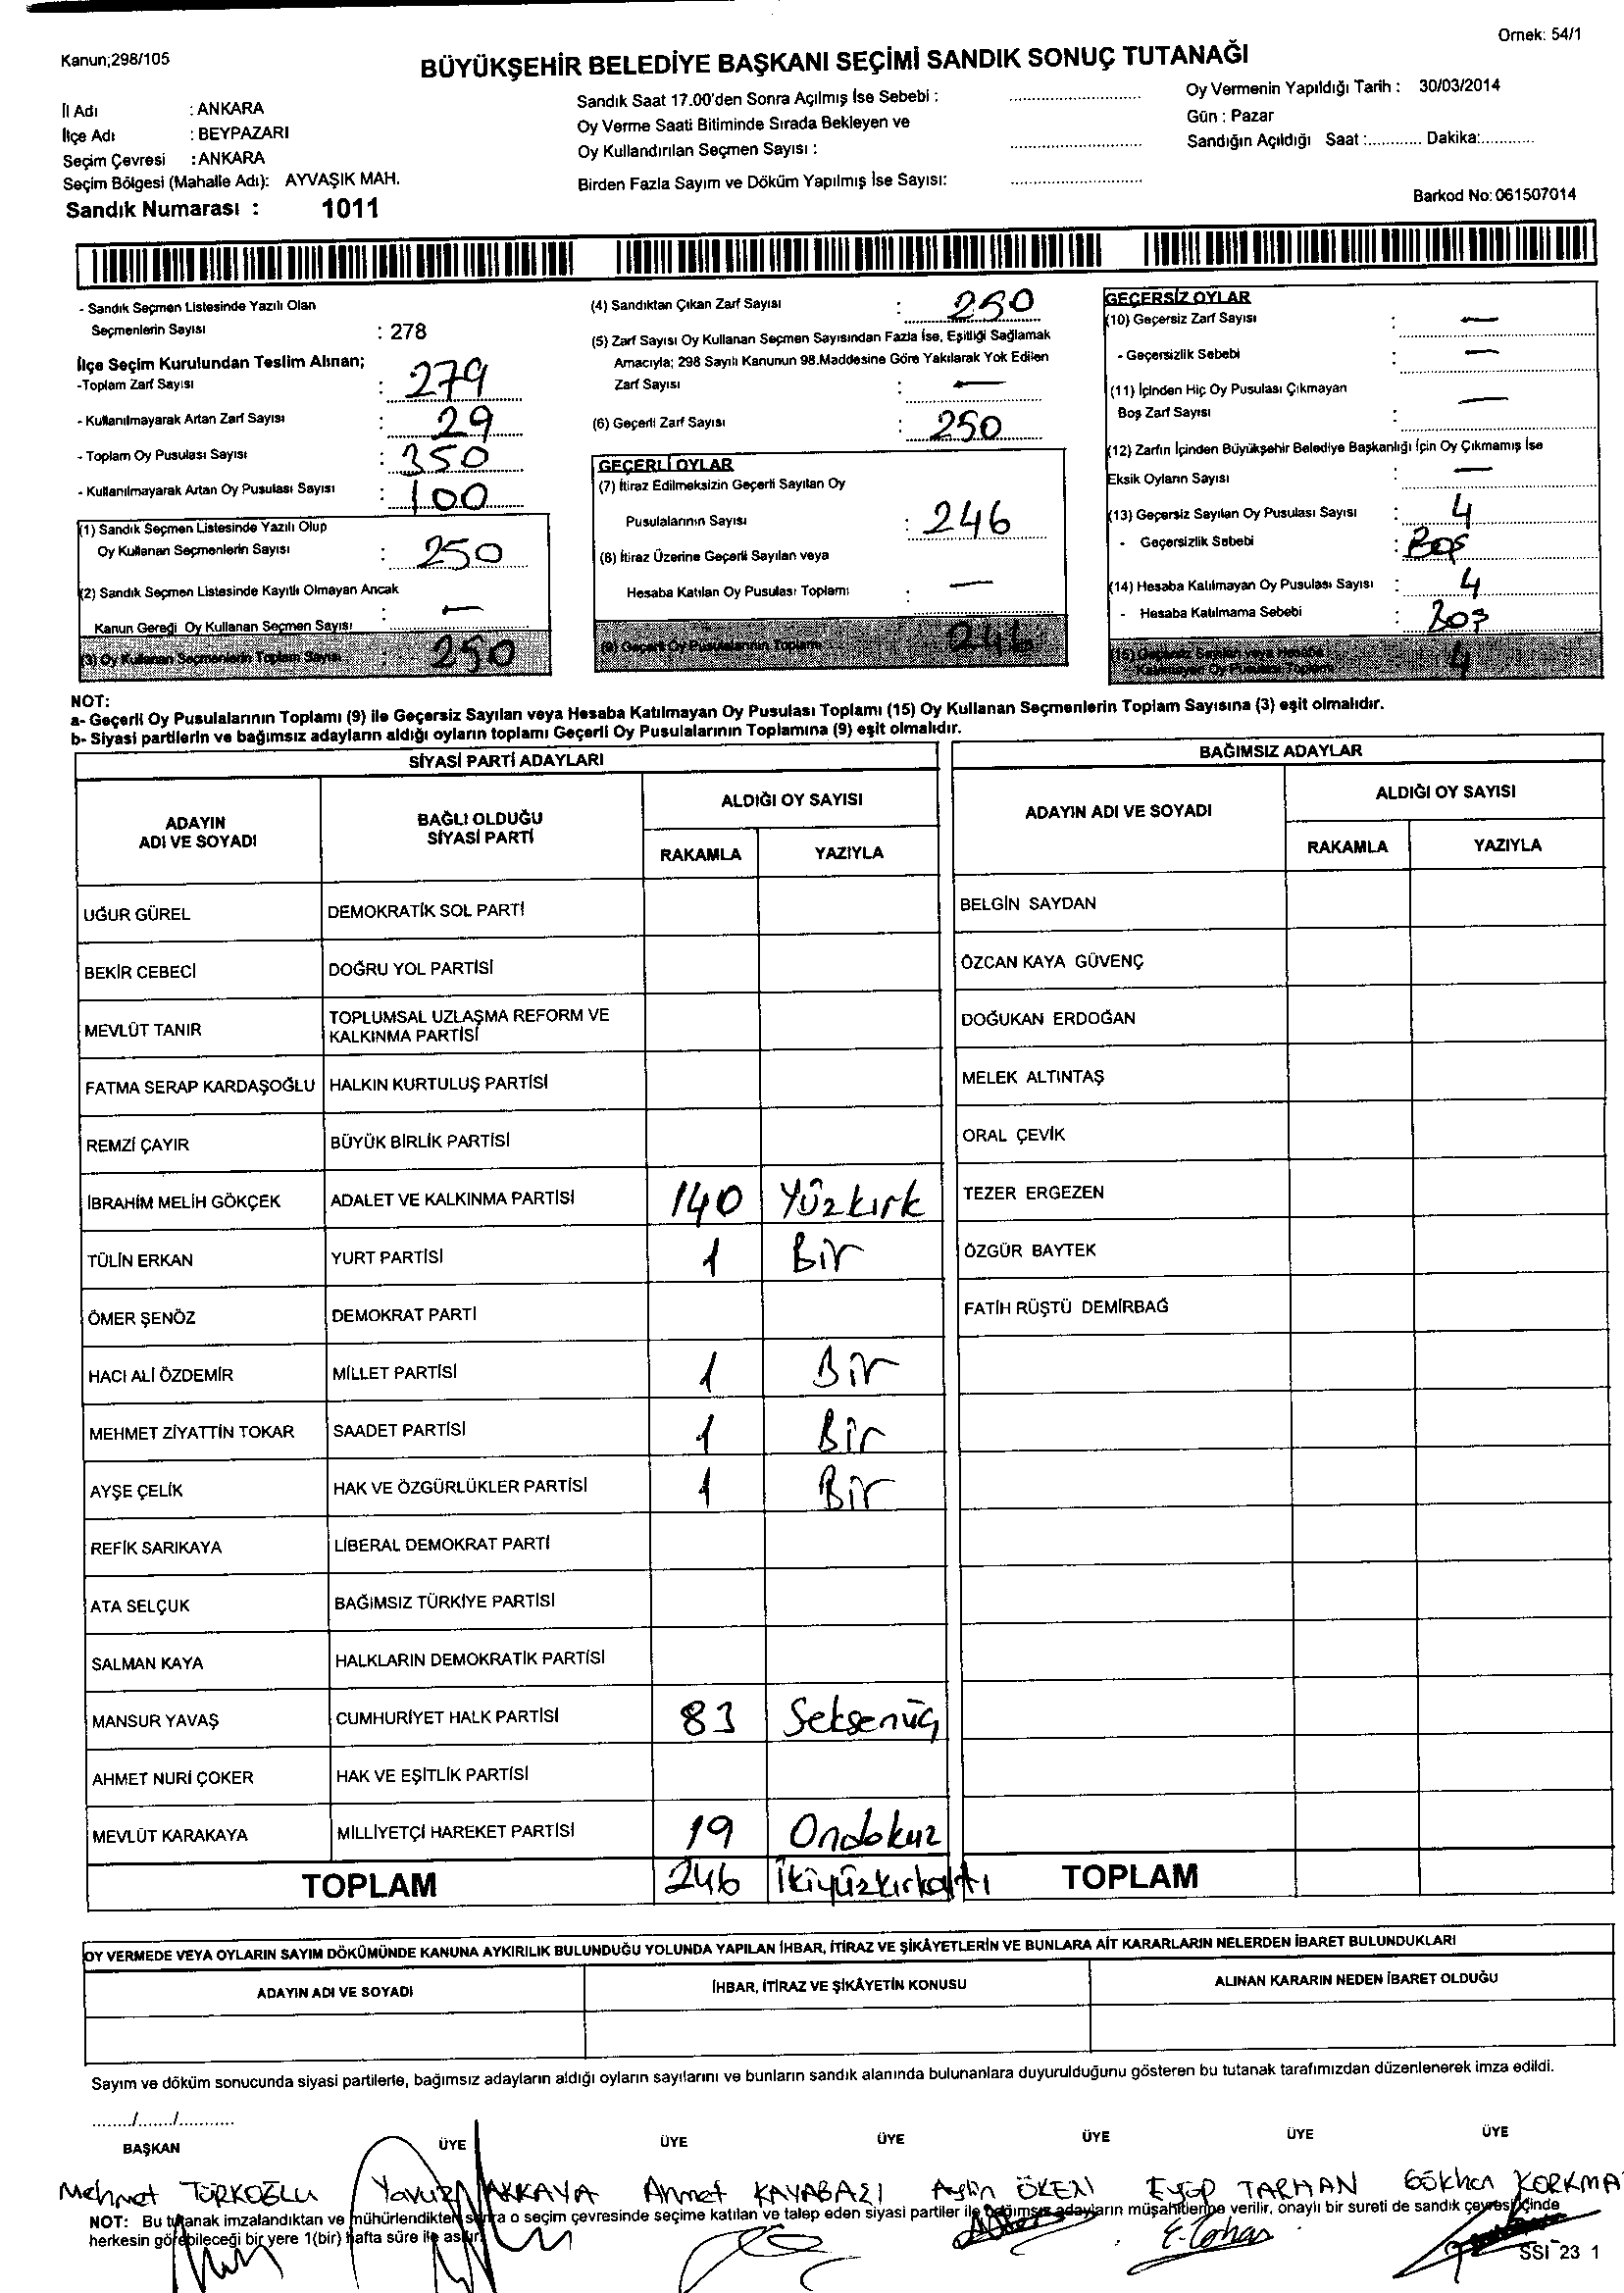 Kanun;298/105
Örnek: 54/1
BÜYÜKŞEHİR BELEDİYE BAŞKANI SEÇİMİ SANDIK SONUÇ TUTANAĞI
İl Adı : ANKARA
İlçe Adı : BEYPAZARI
Seçim Çevresi : ANKARA
Seçim Bölgesi (Mahalle Adı): AYVAŞIK MAH.
Sandık Numarası : 1011
Sandık Saat 17.00'den Sonra Açılmış İse Sebebi :
Oy Verme Saati Bitiminde Sırada Bekleyen ve
Oy Kullandırılan Seçmen Sayısı :
Birden Fazla Sayım ve Döküm Yapılmış İse Sayısı:
Oy Vermenin Yapıldığı Tarih : 30/03/2014
Gün : Pazar
Sandığın Açıldığı Saat :............ Dakika:............
Barkod No: 061507014
- Sandık Seçmen Listesinde Yazılı Olan
Seçmenlerin Sayısı : 278
İlçe Seçim Kurulundan Teslim Alınan;
-Toplam Zarf Sayısı : 279
- Kullanılmayarak Artan Zarf Sayısı : 29
- Toplam Oy Pusulası Sayısı : 350
- Kullanılmayarak Artan Oy Pusulası Sayısı : 100
(1) Sandık Seçmen Listesinde Yazılı Olup
Oy Kullanan Seçmenlerin Sayısı : 250
(2) Sandık Seçmen Listesinde Kayıtlı Olmayan Ancak
Kanun Gereği Oy Kullanan Seçmen Sayısı : —
(3) Oy Kullanan Seçmenlerin Toplam Sayısı : 250
(4) Sandıktan Çıkan Zarf Sayısı : 250
(5) Zarf Sayısı Oy Kullanan Seçmen Sayısından Fazla İse, Eşitliği Sağlamak
Amacıyla; 298 Sayılı Kanunun 98.Maddesine Göre Yakılarak Yok Edilen
Zarf Sayısı : —
(6) Geçerli Zarf Sayısı : 250
GEÇERLİ OYLAR
(7) İtiraz Edilmeksizin Geçerli Sayılan Oy
Pusulalarının Sayısı : 246
(8) İtiraz Üzerine Geçerli Sayılan veya
Hesaba Katılan Oy Pusulası Toplamı : —
(9) Geçerli Oy Pusulalarının Toplamı 246
GEÇERSİZ OYLAR
(10) Geçersiz Zarf Sayısı : —
- Geçersizlik Sebebi : —
(11) İçinden Hiç Oy Pusulası Çıkmayan
Boş Zarf Sayısı : —
(12) Zarfın İçinden Büyükşehir Belediye Başkanlığı İçin Oy Çıkmamış İse
Eksik Oyların Sayısı : —
(13) Geçersiz Sayılan Oy Pusulası Sayısı : 4
- Geçersizlik Sebebi : Boş
(14) Hesaba Katılmayan Oy Pusulası Sayısı : 4
- Hesaba Katılmama Sebebi : Boş
(15) Geçersiz Sayılan veya Hesaba
Katılmayan Oy Pusulası Toplamı 4
NOT:
a- Geçerli Oy Pusulalarının Toplamı (9) ile Geçersiz Sayılan veya Hesaba Katılmayan Oy Pusulası Toplamı (15) Oy Kullanan Seçmenlerin Toplam Sayısına (3) eşit olmalıdır.
b- Siyasi partilerin ve bağımsız adayların aldığı oyların toplamı Geçerli Oy Pusulalarının Toplamına (9) eşit olmalıdır.
SİYASİ PARTİ ADAYLARI
ADAYIN ADI VE SOYADI
BAĞLI OLDUĞU SİYASİ PARTİ
ALDIĞI OY SAYISI
RAKAMLA YAZIYLA
UĞUR GÜREL DEMOKRATİK SOL PARTİ
BEKİR CEBECİ DOĞRU YOL PARTİSİ
MEVLÜT TANIR TOPLUMSAL UZLAŞMA REFORM VE KALKINMA PARTİSİ
FATMA SERAP KARDAŞOĞLU HALKIN KURTULUŞ PARTİSİ
REMZİ ÇAYIR BÜYÜK BİRLİK PARTİSİ
İBRAHİM MELİH GÖKÇEK ADALET VE KALKINMA PARTİSİ 140 Yüzkırk
TÜLİN ERKAN YURT PARTİSİ 1 Bir
ÖMER ŞENÖZ DEMOKRAT PARTİ
HACI ALİ ÖZDEMİR MİLLET PARTİSİ 1 Bir
MEHMET ZİYATTİN TOKAR SAADET PARTİSİ 1 Bir
AYŞE ÇELİK HAK VE ÖZGÜRLÜKLER PARTİSİ 1 Bir
REFİK SARIKAYA LİBERAL DEMOKRAT PARTİ
ATA SELÇUK BAĞIMSIZ TÜRKİYE PARTİSİ
SALMAN KAYA HALKLARIN DEMOKRATİK PARTİSİ
MANSUR YAVAŞ CUMHURİYET HALK PARTİSİ 83 Seksenüç
AHMET NURİ ÇOKER HAK VE EŞİTLİK PARTİSİ
MEVLÜT KARAKAYA MİLLİYETÇİ HAREKET PARTİSİ 19 Ondokuz
TOPLAM 246 İkiyüzkırkaltı
BAĞIMSIZ ADAYLAR
ADAYIN ADI VE SOYADI
ALDIĞI OY SAYISI
RAKAMLA YAZIYLA
BELGİN SAYDAN
ÖZCAN KAYA GÜVENÇ
DOĞUKAN ERDOĞAN
MELEK ALTINTAŞ
ORAL ÇEVİK
TEZER ERGEZEN
ÖZGÜR BAYTEK
FATİH RÜŞTÜ DEMİRBAĞ
TOPLAM
OY VERMEDE VEYA OYLARIN SAYIM DÖKÜMÜNDE KANUNA AYKIRILIK BULUNDUĞU YOLUNDA YAPILAN İHBAR, İTİRAZ VE ŞİKÂYETLERİN VE BUNLARA AİT KARARLARIN NELERDEN İBARET BULUNDUKLARI
ADAYIN ADI VE SOYADI İHBAR, İTİRAZ VE ŞİKÂYETİN KONUSU ALINAN KARARIN NEDEN İBARET OLDUĞU
Sayım ve döküm sonucunda siyasi partilerle, bağımsız adayların aldığı oyların sayılarını ve bunların sandık alanında bulunanlara duyurulduğunu gösteren bu tutanak tarafımızdan düzenlenerek imza edildi.
......../......./...........
BAŞKAN ÜYE ÜYE ÜYE ÜYE ÜYE ÜYE
Mehmet TÜRKOĞLU Yavuz AKKAYA Ahmet KAYABAŞI Aylin ÖKEN Eyüp TARHAN Gökhan KORKMA
NOT: Bu tutanak imzalandıktan ve mühürlendikten sonra o seçim çevresinde seçime katılan ve talep eden siyasi partiler ile bağımsız adayların müşahitlerine verilir, onaylı bir sureti de sandık çevresi içinde
herkesin görebileceği bir yere 1(bir) hafta süre ile asılır.
SSI 23 1